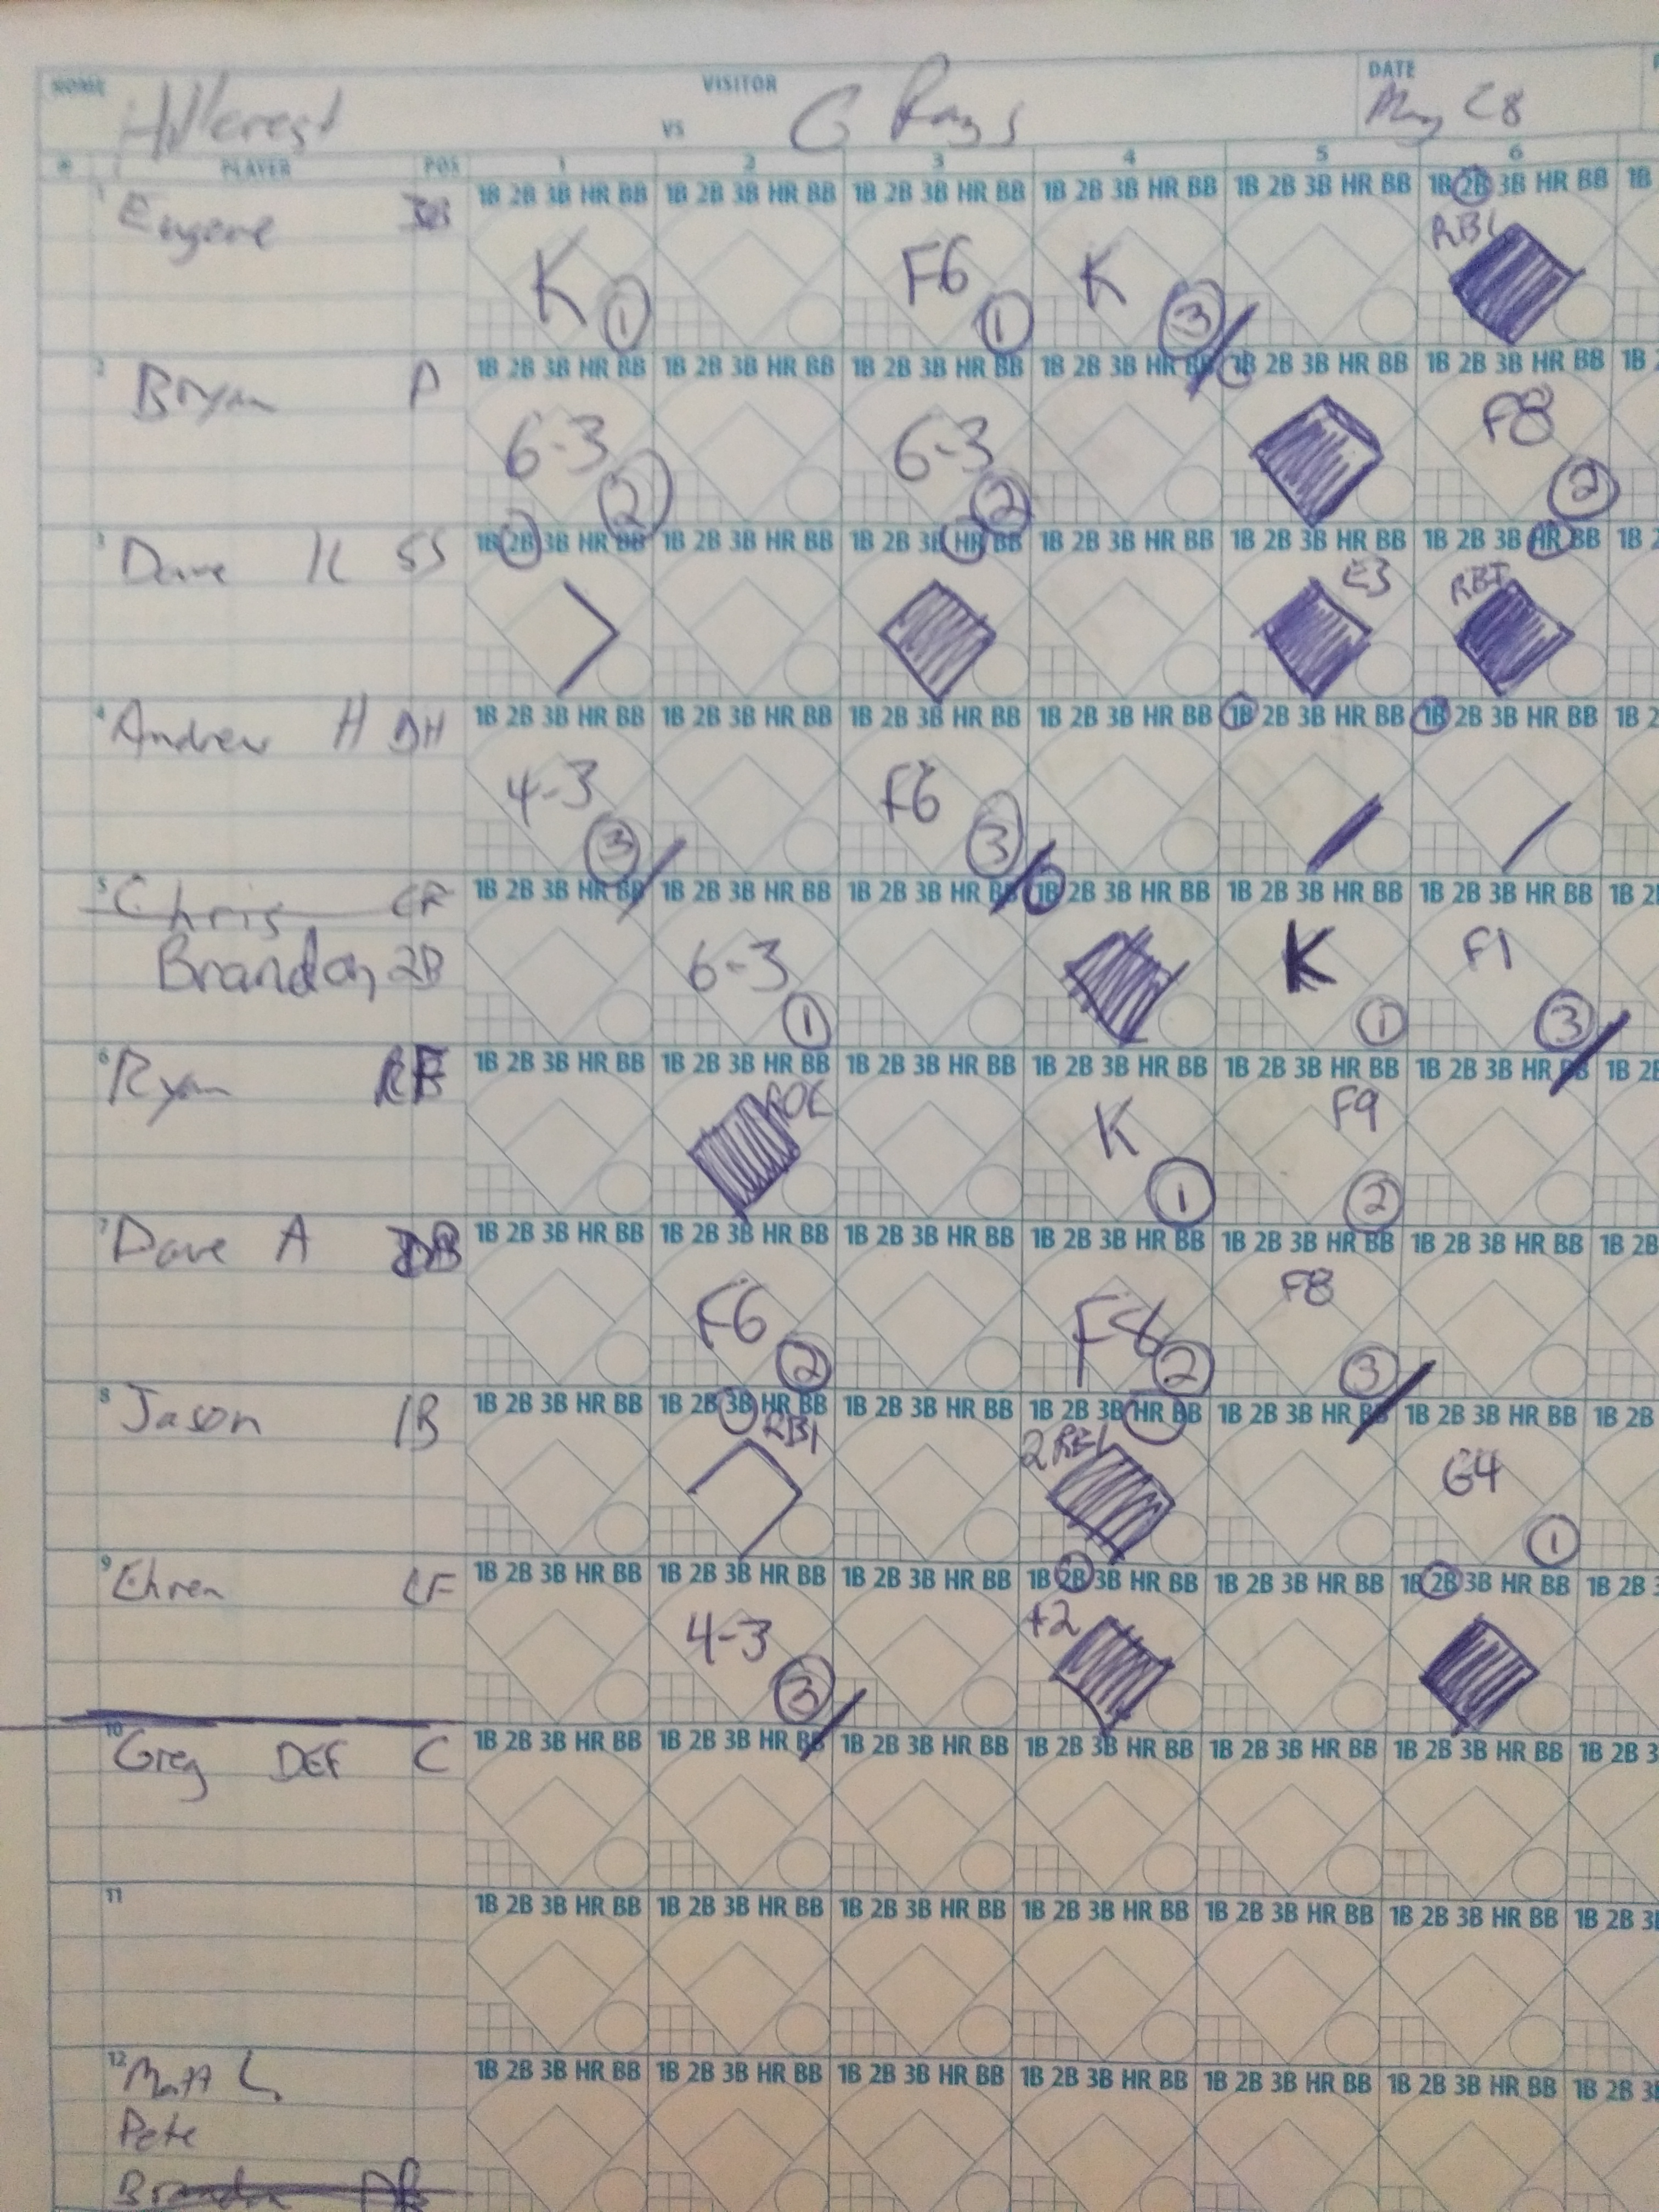 HOME VISITOR DATE
Hillcrest VS C Rays May 28
# PLAYER POS 1 2 3 4 5 6
1 1B 2B 3B HR BB 1B 2B 3B HR BB 1B 2B 3B HR BB 1B 2B 3B HR BB 1B 2B 3B HR BB 1B 2B 3B HR BB 1B
Eugene K 1 F6 1 K 3 RBI
2 1B 2B 3B HR BB 1B 2B 3B HR BB 1B 2B 3B HR BB 1B 2B 3B HR BB 1B 2B 3B HR BB 1B 2B 3B HR BB 1B 2
Bryan P 6-3 2 6-3 2 F8 2
3 1B 2B 3B HR BB 1B 2B 3B HR BB 1B 2B 3B HR BB 1B 2B 3B HR BB 1B 2B 3B HR BB 1B 2B 3B HR BB 1B 2
Dave K SS E3 RBI
4 1B 2B 3B HR BB 1B 2B 3B HR BB 1B 2B 3B HR BB 1B 2B 3B HR BB 1B 2B 3B HR BB 1B 2B 3B HR BB 1B 2
Andrew H DH 4-3 3 F6 3
5 1B 2B 3B HR BB 1B 2B 3B HR BB 1B 2B 3B HR BB 1B 2B 3B HR BB 1B 2B 3B HR BB 1B 2B 3B HR BB 1B 2
Chris CF
Brandon 2B 6-3 1 K 1 F1 3
6 1B 2B 3B HR BB 1B 2B 3B HR BB 1B 2B 3B HR BB 1B 2B 3B HR BB 1B 2B 3B HR BB 1B 2B 3B HR BB 1B 2B
Ryan RF ROE K 1 F9 2
7 1B 2B 3B HR BB 1B 2B 3B HR BB 1B 2B 3B HR BB 1B 2B 3B HR BB 1B 2B 3B HR BB 1B 2B 3B HR BB 1B 2B
Dave A F6 2 F8 2 F8 3
8 1B 2B 3B HR BB 1B 2B 3B HR BB 1B 2B 3B HR BB 1B 2B 3B HR BB 1B 2B 3B HR BB 1B 2B 3B HR BB 1B 2B
Jason 1B RBI 2 RBI G4 1
9 1B 2B 3B HR BB 1B 2B 3B HR BB 1B 2B 3B HR BB 1B 2B 3B HR BB 1B 2B 3B HR BB 1B 2B 3B HR BB 1B 2B 3
Ehren LF 4-3 3 +2
10 1B 2B 3B HR BB 1B 2B 3B HR BB 1B 2B 3B HR BB 1B 2B 3B HR BB 1B 2B 3B HR BB 1B 2B 3B HR BB 1B 2B 3
Greg DEF C
11 1B 2B 3B HR BB 1B 2B 3B HR BB 1B 2B 3B HR BB 1B 2B 3B HR BB 1B 2B 3B HR BB 1B 2B 3B HR BB 1B 2B 3
12 1B 2B 3B HR BB 1B 2B 3B HR BB 1B 2B 3B HR BB 1B 2B 3B HR BB 1B 2B 3B HR BB 1B 2B 3B HR BB 1B 2B 3
Matt L.
Pete
Brandon